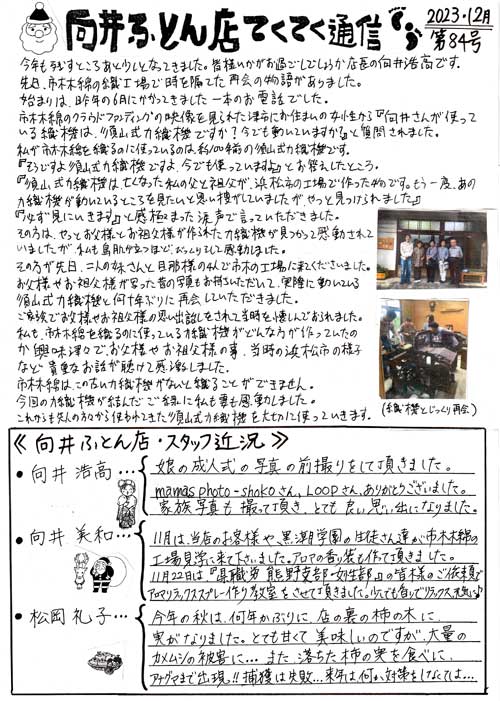 向井ふとん店てくてく通信
2023.12月
第84号
今年も残すところあと少しとなってきました。皆様いかがお過ごしでしょうか店長の向井浩高です。
先日、市木木綿の織工場で時を隔てた再会の物語がありました。
始まりは、昨年の6月にかかってきました一本のお電話でした。
市木木綿のクラウドファンディングの映像を見られた津市にお住まいの女性から『向井さんが使って
いる織機は、須山式力織機ですか?今でも動いていますか?』と質問されました。
私が市木木綿を織るのに使っているのは、約100年前の須山式力織機です。
『そうですよ須山式力織機ですよ、今でも使っていますよ』とお答えしたところ。
『須山式力織機は、亡くなった私の父と祖父が、浜松市の工場で作った物です。もう一度、あの
力織機が動いているところを見たいと思い捜がしていましたが、やっと見つけられました』
『必ず見にいきます』と感極まった涙声で言っていただきました。
その方は、やっとお父様とお祖父様が作られた力織機が見つかって感動されて
いましたが、私も鳥肌が立つほどびっくりして感動しました。
その方が先日、二人の妹さんと旦那様の4人で市木の工場に来てくださいました。
お父様やお祖父様が写った昔の写真もお持ちいただいて、実際に動いている
須山式力織機と何十年ぶりに再会していただきました。
ご家族でお父様やお祖父様の思い出話しをされて当時を懐しんでおられました。
私も、市木木綿を織るのに使っている力織機がどんな方が作っていたの
か興味津々で、お父様やお祖父様の事、当時の浜松市の様子
など貴重なお話が聴けて感激しました。
市木木綿は、この古い力織機がないと織ることができません。
今回の力織機が結んだご縁に私も妻も感動しました。
これからも先人の方々から使われてきた須山式力織機を大切に使っていきます。
(織機とじっくり再会)
《向井ふとん店・スタッフ近況》
・向井 浩高…
娘の成人式の写真の前撮りをして頂きました。
mamas photo-shokoさん、LOOPさん、ありがとうございました。
家族写真も撮って頂き、とても良い思い出になりました。
・向井 美和…
11月は、当店のお客様や、黒潮学園の生徒さん達が市木木綿の
工場見学に来て下さいました。アロマの香り袋も作って頂きました。
11月22日は『県職労 熊野支部・女性部』の皆様のご依頼で
アロマリラックススプレー作り教室をさせて頂きました。少しでも皆でリラックス
・松岡 礼子…
今年の秋は、何年かぶりに、店の裏の柿の木に、
実がなりました。とても甘くて美味しいのですが、大量の
カメムシの被害に… また、落ちた柿の実を食べに、
アナグマまで出現!!捕獲は失敗…来年は何か対策をしなくては…